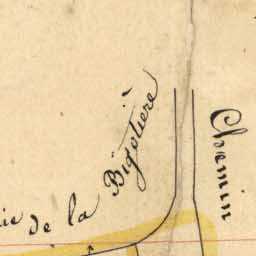 de la Bigotière
Chemin